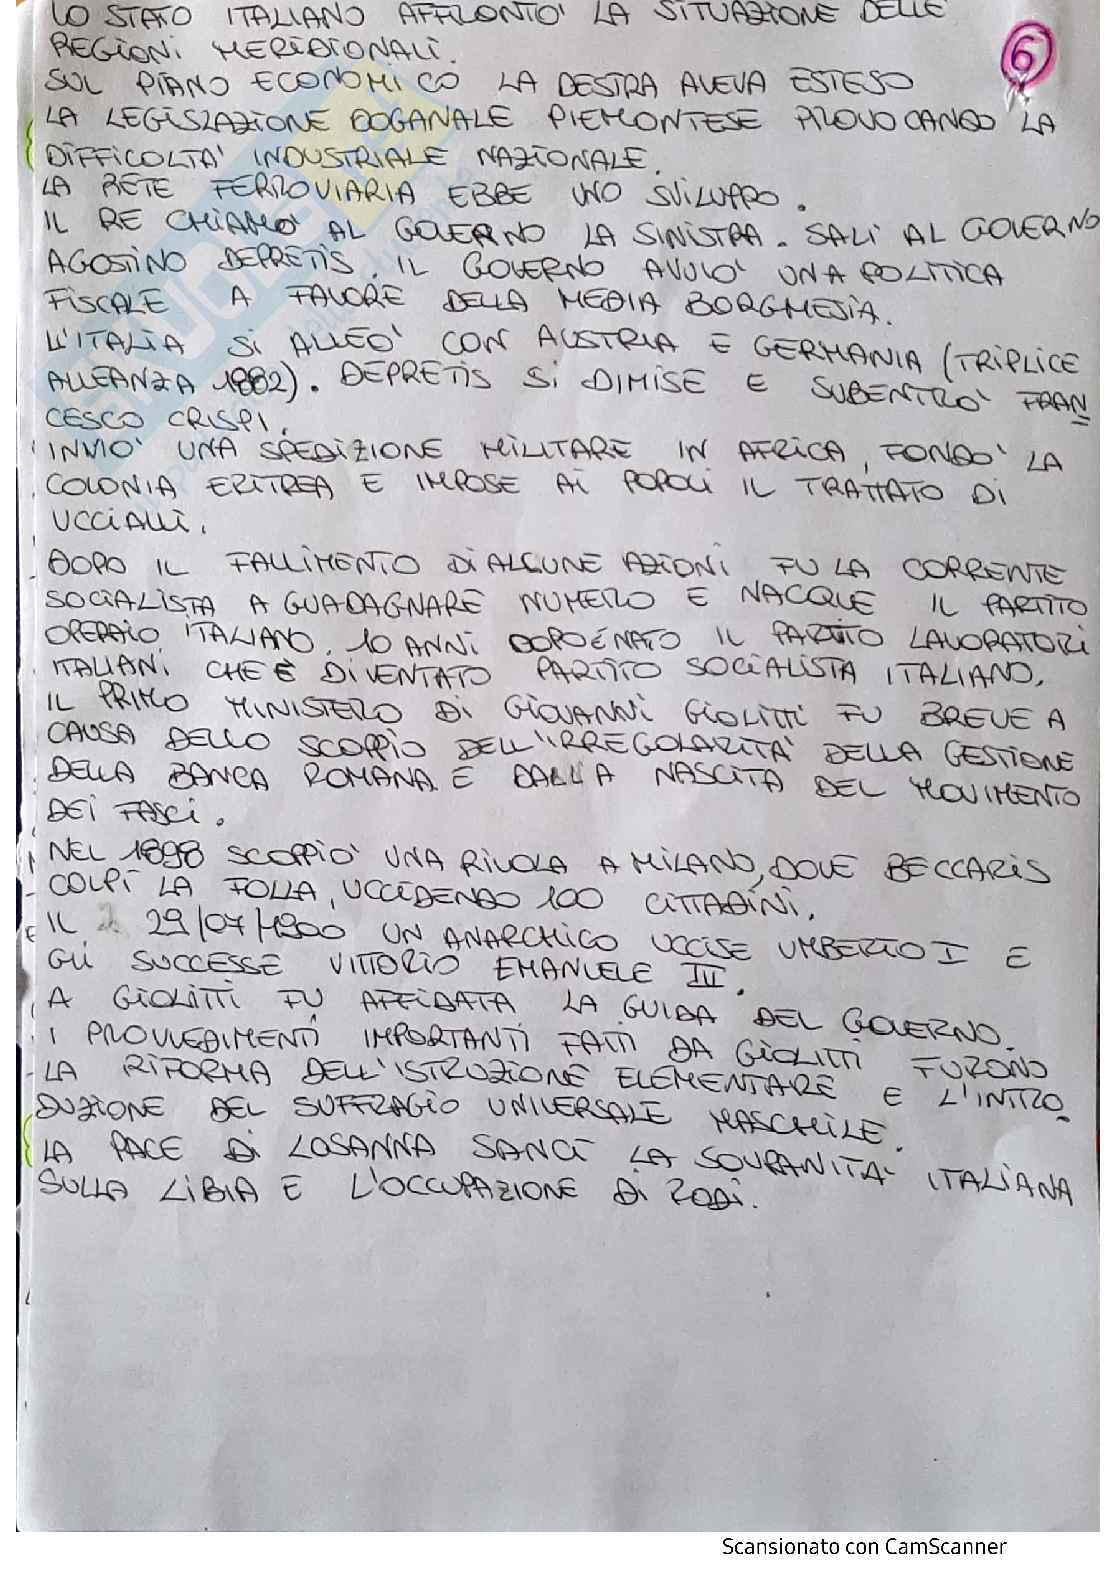 LO STATO ITALIANO AFFRONTO' LA SITUAZIONE DELLE
REGIONI MERIDIONALI.
6
SUL PIANO ECONOMICO LA DESTRA AVEVA ESTESO
LA LEGISLAZIONE DOGANALE PIEMONTESE PROVOCANDO LA
DIFFICOLTA' INDUSTRIALE NAZIONALE.
LA RETE FERROVIARIA EBBE UNO SVILUPPO.
IL RE CHIAMO' AL GOVERNO LA SINISTRA. SALI' AL GOVERNO
AGOSTINO DEPRETIS. IL GOVERNO AVVIO' UNA POLITICA
FISCALE A FAVORE DELLA MEDIA BORGHESIA.
L'ITALIA SI ALLEO' CON AUSTRIA E GERMANIA (TRIPLICE
ALLEANZA 1882). DEPRETIS SI DIMISE E SUBENTRO' FRAN
CESCO CRISPI.
INVIO' UNA SPEDIZIONE MILITARE IN AFRICA, FONDO' LA
COLONIA ERITREA E IMPOSE AI POPOLI IL TRATTATO DI
UCCIALLI.
DOPO IL FALLIMENTO DI ALCUNE AZIONI FU LA CORRENTE
SOCIALISTA A GUADAGNARE NUMERO E NACQUE IL PARTITO
OPERAIO ITALIANO. 10 ANNI DOPO É NATO IL PARTITO LAVORATORI
ITALIANI CHE É DIVENTATO PARTITO SOCIALISTA ITALIANO.
IL PRIMO MINISTERO DI GIOVANNI GIOLITTI FU BREVE A
CAUSA DELLO SCOPPIO DELL'IRREGOLARITA' DELLA GESTIONE
DELLA BANCA ROMANA E DALLA NASCITA DEL MOVIMENTO
DEI FASCI.
NEL 1898 SCOPPIO' UNA RIVOLA A MILANO, DOVE BECCARIS
COLPÌ LA FOLLA, UCCIDENDO 100 CITTADINI.
IL 29/07/1900 UN ANARCHICO UCCISE UMBERTO I E
GLI SUCCESSE VITTORIO EMANUELE III.
A GIOLITTI FU AFFIDATA LA GUIDA DEL GOVERNO.
I PROVVEDIMENTI IMPORTANTI FATTI DA GIOLITTI FURONO
LA RIFORMA DELL'ISTRUZIONE ELEMENTARE E L'INTRO
DUZIONE DEL SUFFRAGIO UNIVERSALE MASCHILE.
LA PACE DI LOSANNA SANCÌ LA SOVRANITA' ITALIANA
SULLA LIBIA E L'OCCUPAZIONE DI RODI.
Scansionato con CamScanner